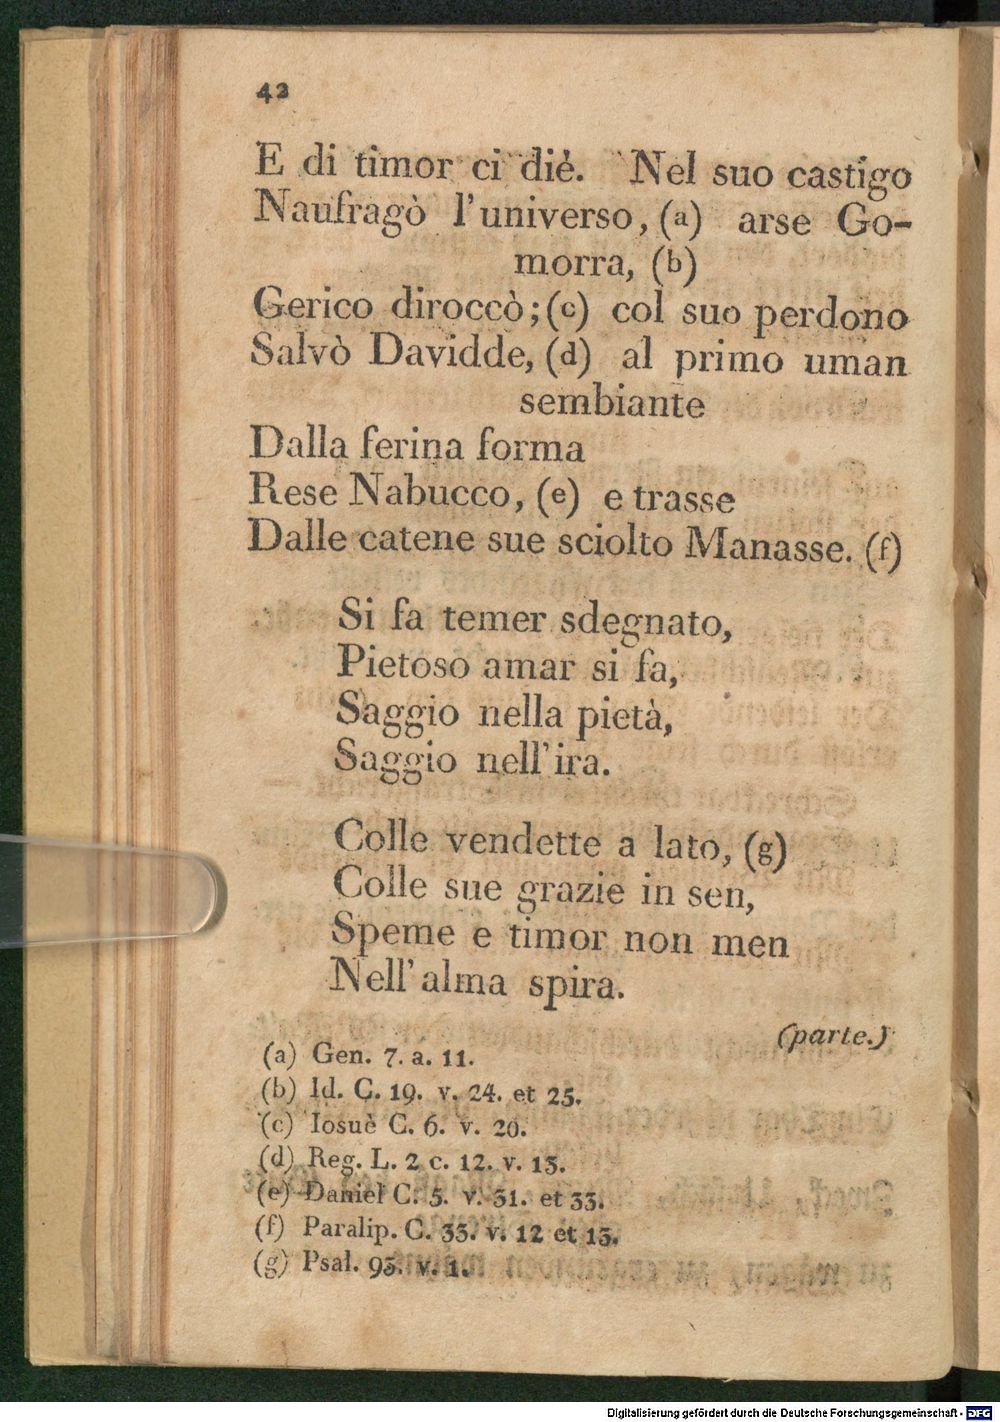 42
E di timor ci diè. Nel suo castigo
Naufragò l'universo, (a) arse Go-
morra, (b)
Gerico diroccò; (c) col suo perdono
Salvò Davidde, (d) al primo uman
sembiante
Dalla ferina forma
Rese Nabucco, (e) e trasse
Dalle catene sue sciolto Manasse. (f)
Si fa temer sdegnato,
Pietoso amar si fa,
Saggio nella pietà,
Saggio nell'ira.
Colle vendette a lato, (g)
Colle sue grazie in sen,
Speme e timor non men
Nell'alma spira.
(parte.)
(a) Gen. 7. a. 11.
(b) Id. C. 19. v. 24. et 25.
(c) Iosuè C. 6. v. 20.
(d) Reg. L. 2 c. 12. v. 13.
(e) Daniel C. 5. v. 31. et 33.
(f) Paralip. C. 33. v. 12 et 13.
(g) Psal. 93. v. 1.
Digitalisierung gefördert durch die Deutsche Forschungsgemeinschaft - DFG